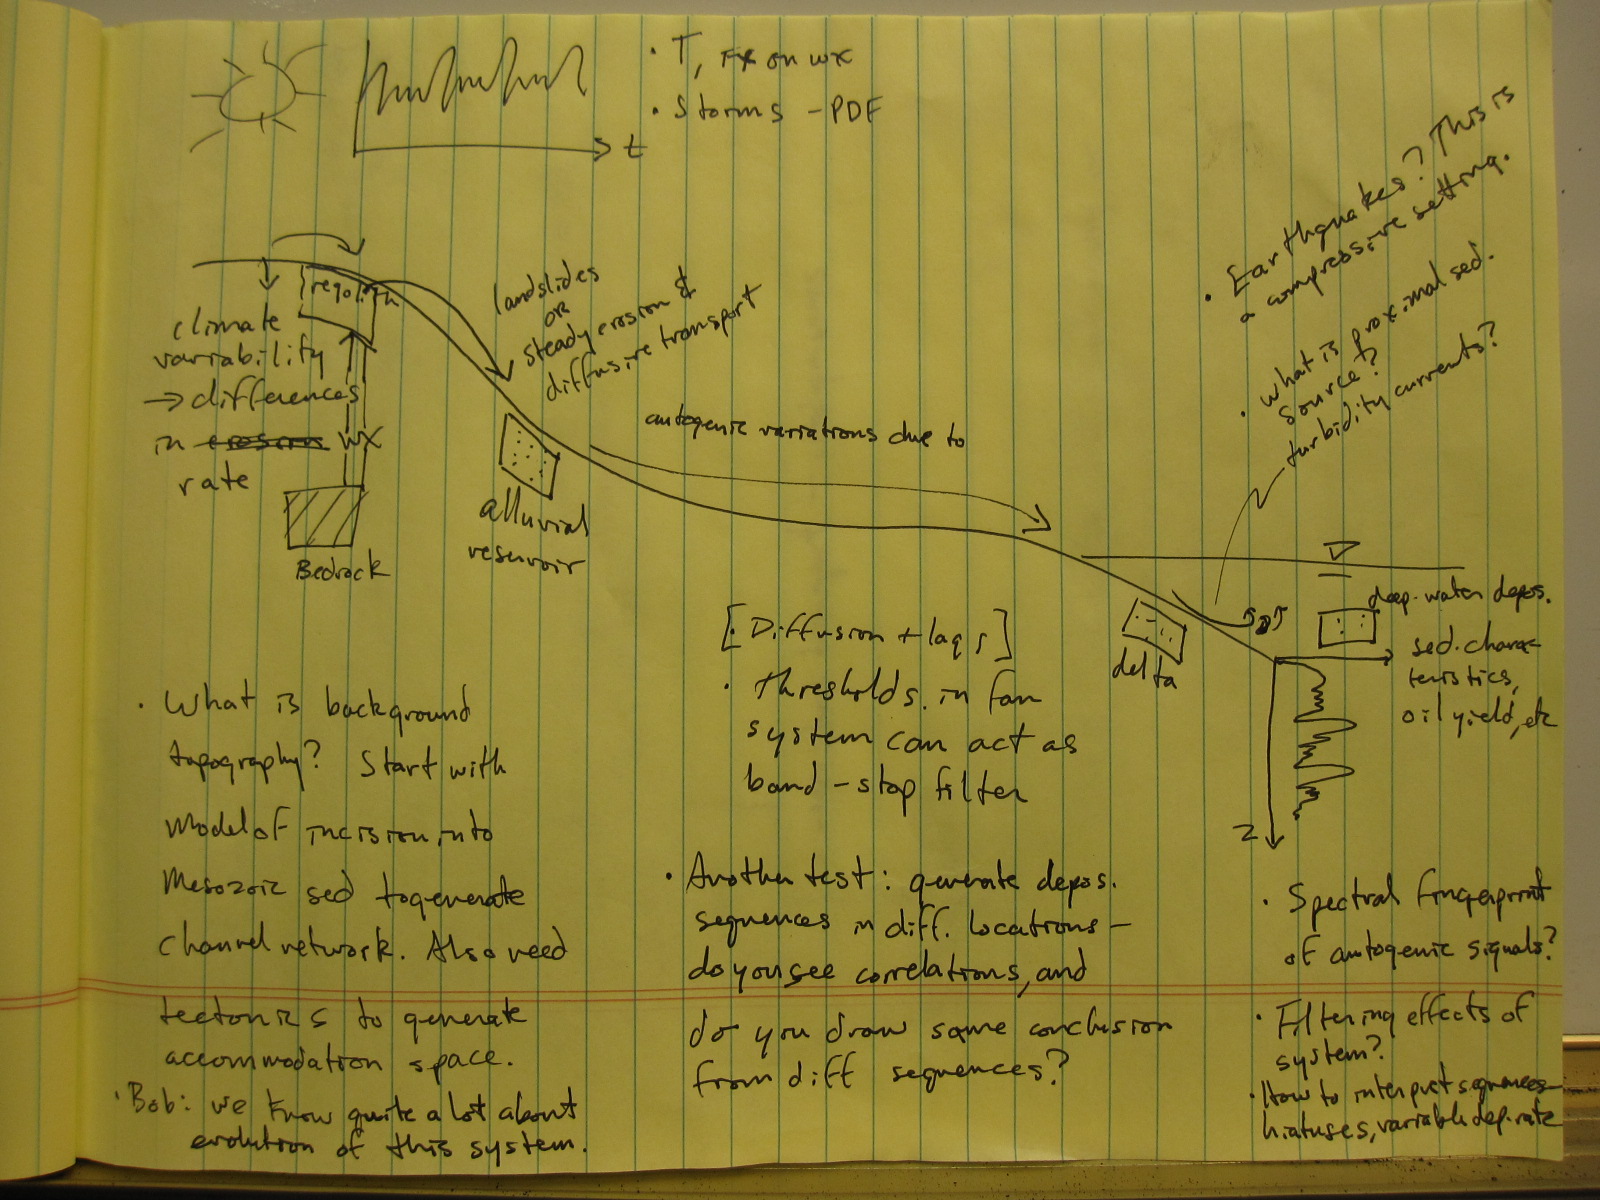 · T, rx on wx
· Storms - PDF
t
regolith
climate
variability
→ differences
in erosion wx
rate
Bedrock
landslides
or
steady erosion &
diffusive transport
alluvial
reservoir
autogenic variations due to
· Earthquakes? This is
a compressive setting.
· What is proximal sed.
source?
turbidity currents?
delta
deep-water depos.
sed. charac-
teristics,
oil yield, etc
z
[· Diffusion + lags]
· thresholds in fan
system can act as
band-stop filter
· What is background
topography? Start with
model of incision into
Mesozoic sed to generate
channel network. Also need
tectonics to generate
accommodation space.
· Bob: we know quite a lot about
evolution of this system.
· Another test: generate depos.
sequences in diff. locations -
do you see correlations, and
do you draw same conclusion
from diff sequences?
· Spectral fingerprint
of autogenic signals?
· Filtering effects of
system?
· How to interpret sequences
hiatuses, variable dep. rate